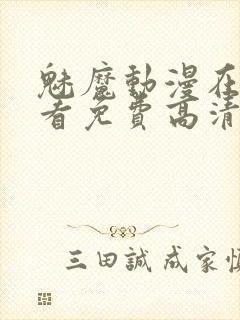 魅魔動漫在
看免費高清
三田誠 成家慎